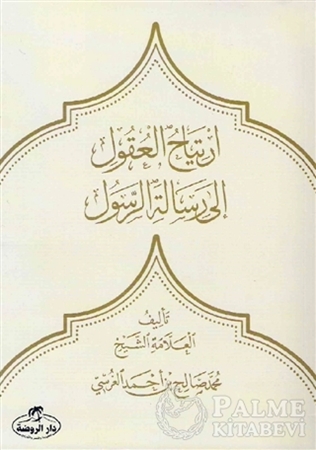 ارتياح العقول
إلى رسالة الرسول
تأليف
العلامة الشيخ
محمد صالح بن أحمد الغرسي
دار الروضة
PALME
KİTABEVİ